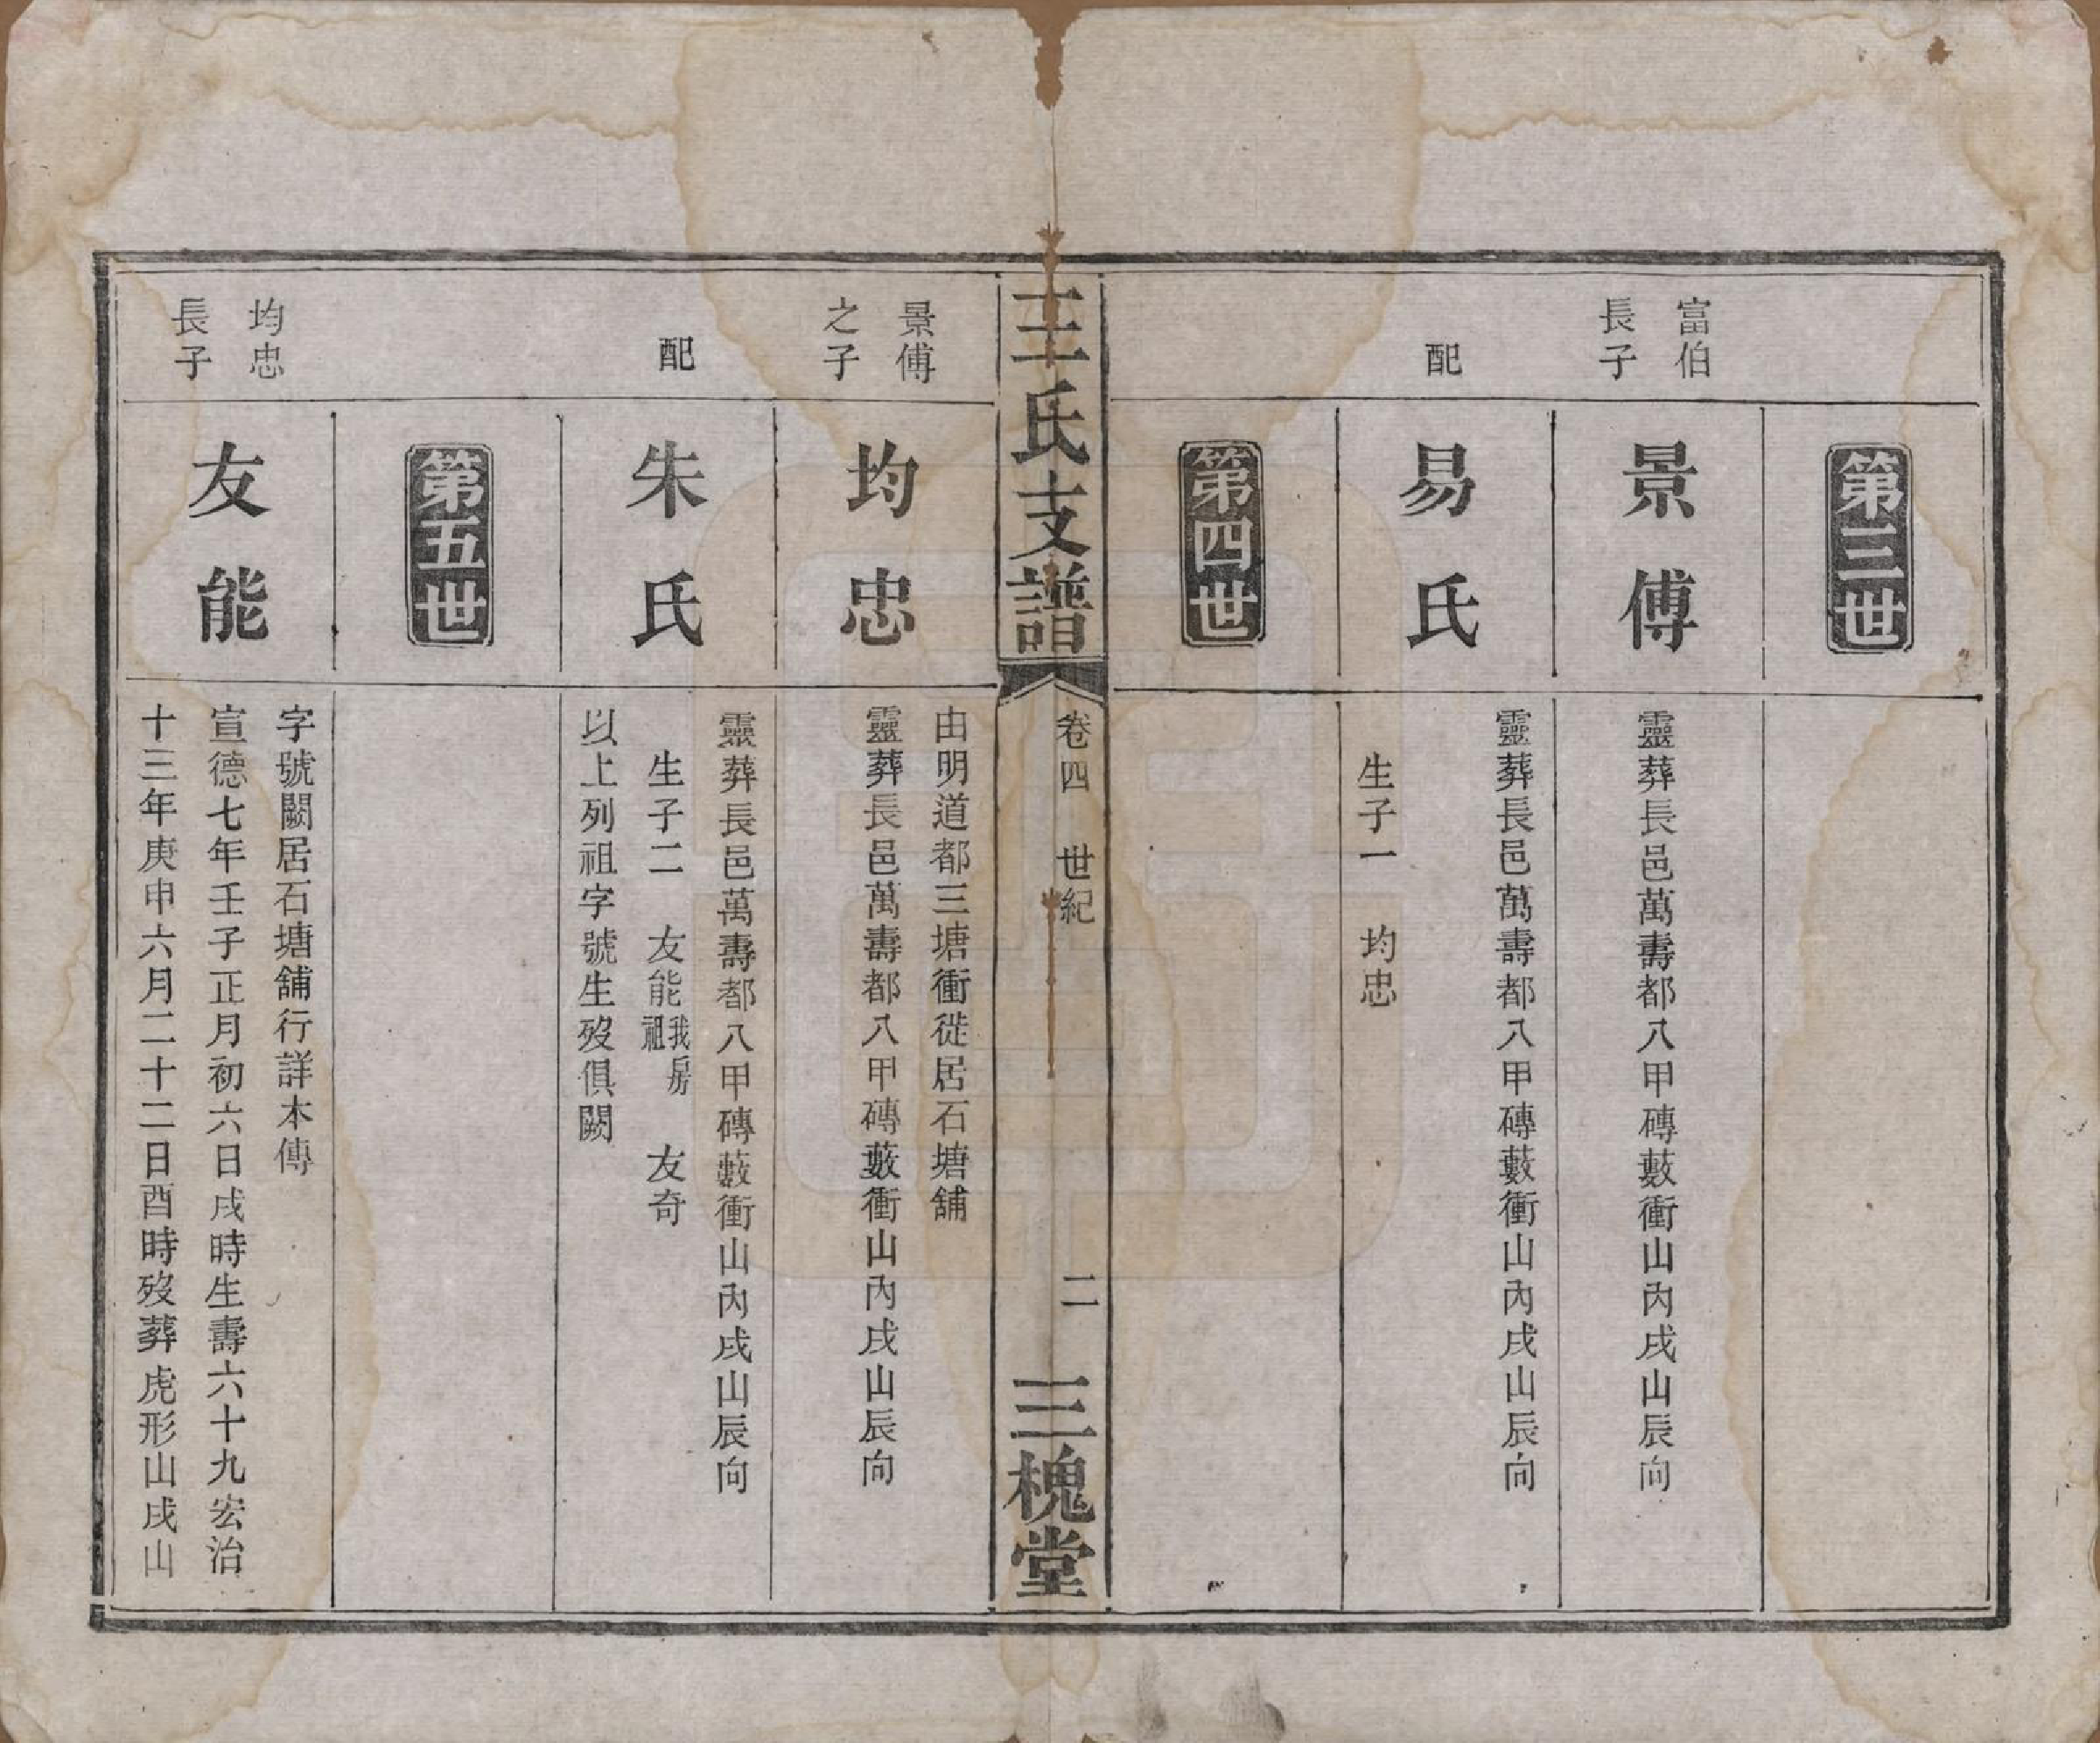 第三世
富伯
長子
景傅
靈葬長邑萬壽都八甲磚藪衝山內戌山辰向
配
易氏
靈葬長邑萬壽都八甲磚藪衝山內戌山辰向
生子一 均忠
第四世
王氏支譜
卷四 世紀
二
三槐堂
景傅
之子
均忠
由明道都三塘衝徙居石塘舖
靈葬長邑萬壽都八甲磚藪衝山內戌山辰向
配
朱氏
靈葬長邑萬壽都八甲磚藪衝山內戌山辰向
生子二 友能我房祖 友奇
以上列祖字號生歿俱闕
第五世
均忠
長子
友能
字號闕居石塘舖行詳本傳
宣德七年壬子正月初六日戌時生壽六十九宏治
十三年庚申六月二十二日酉時歿葬虎形山戌山